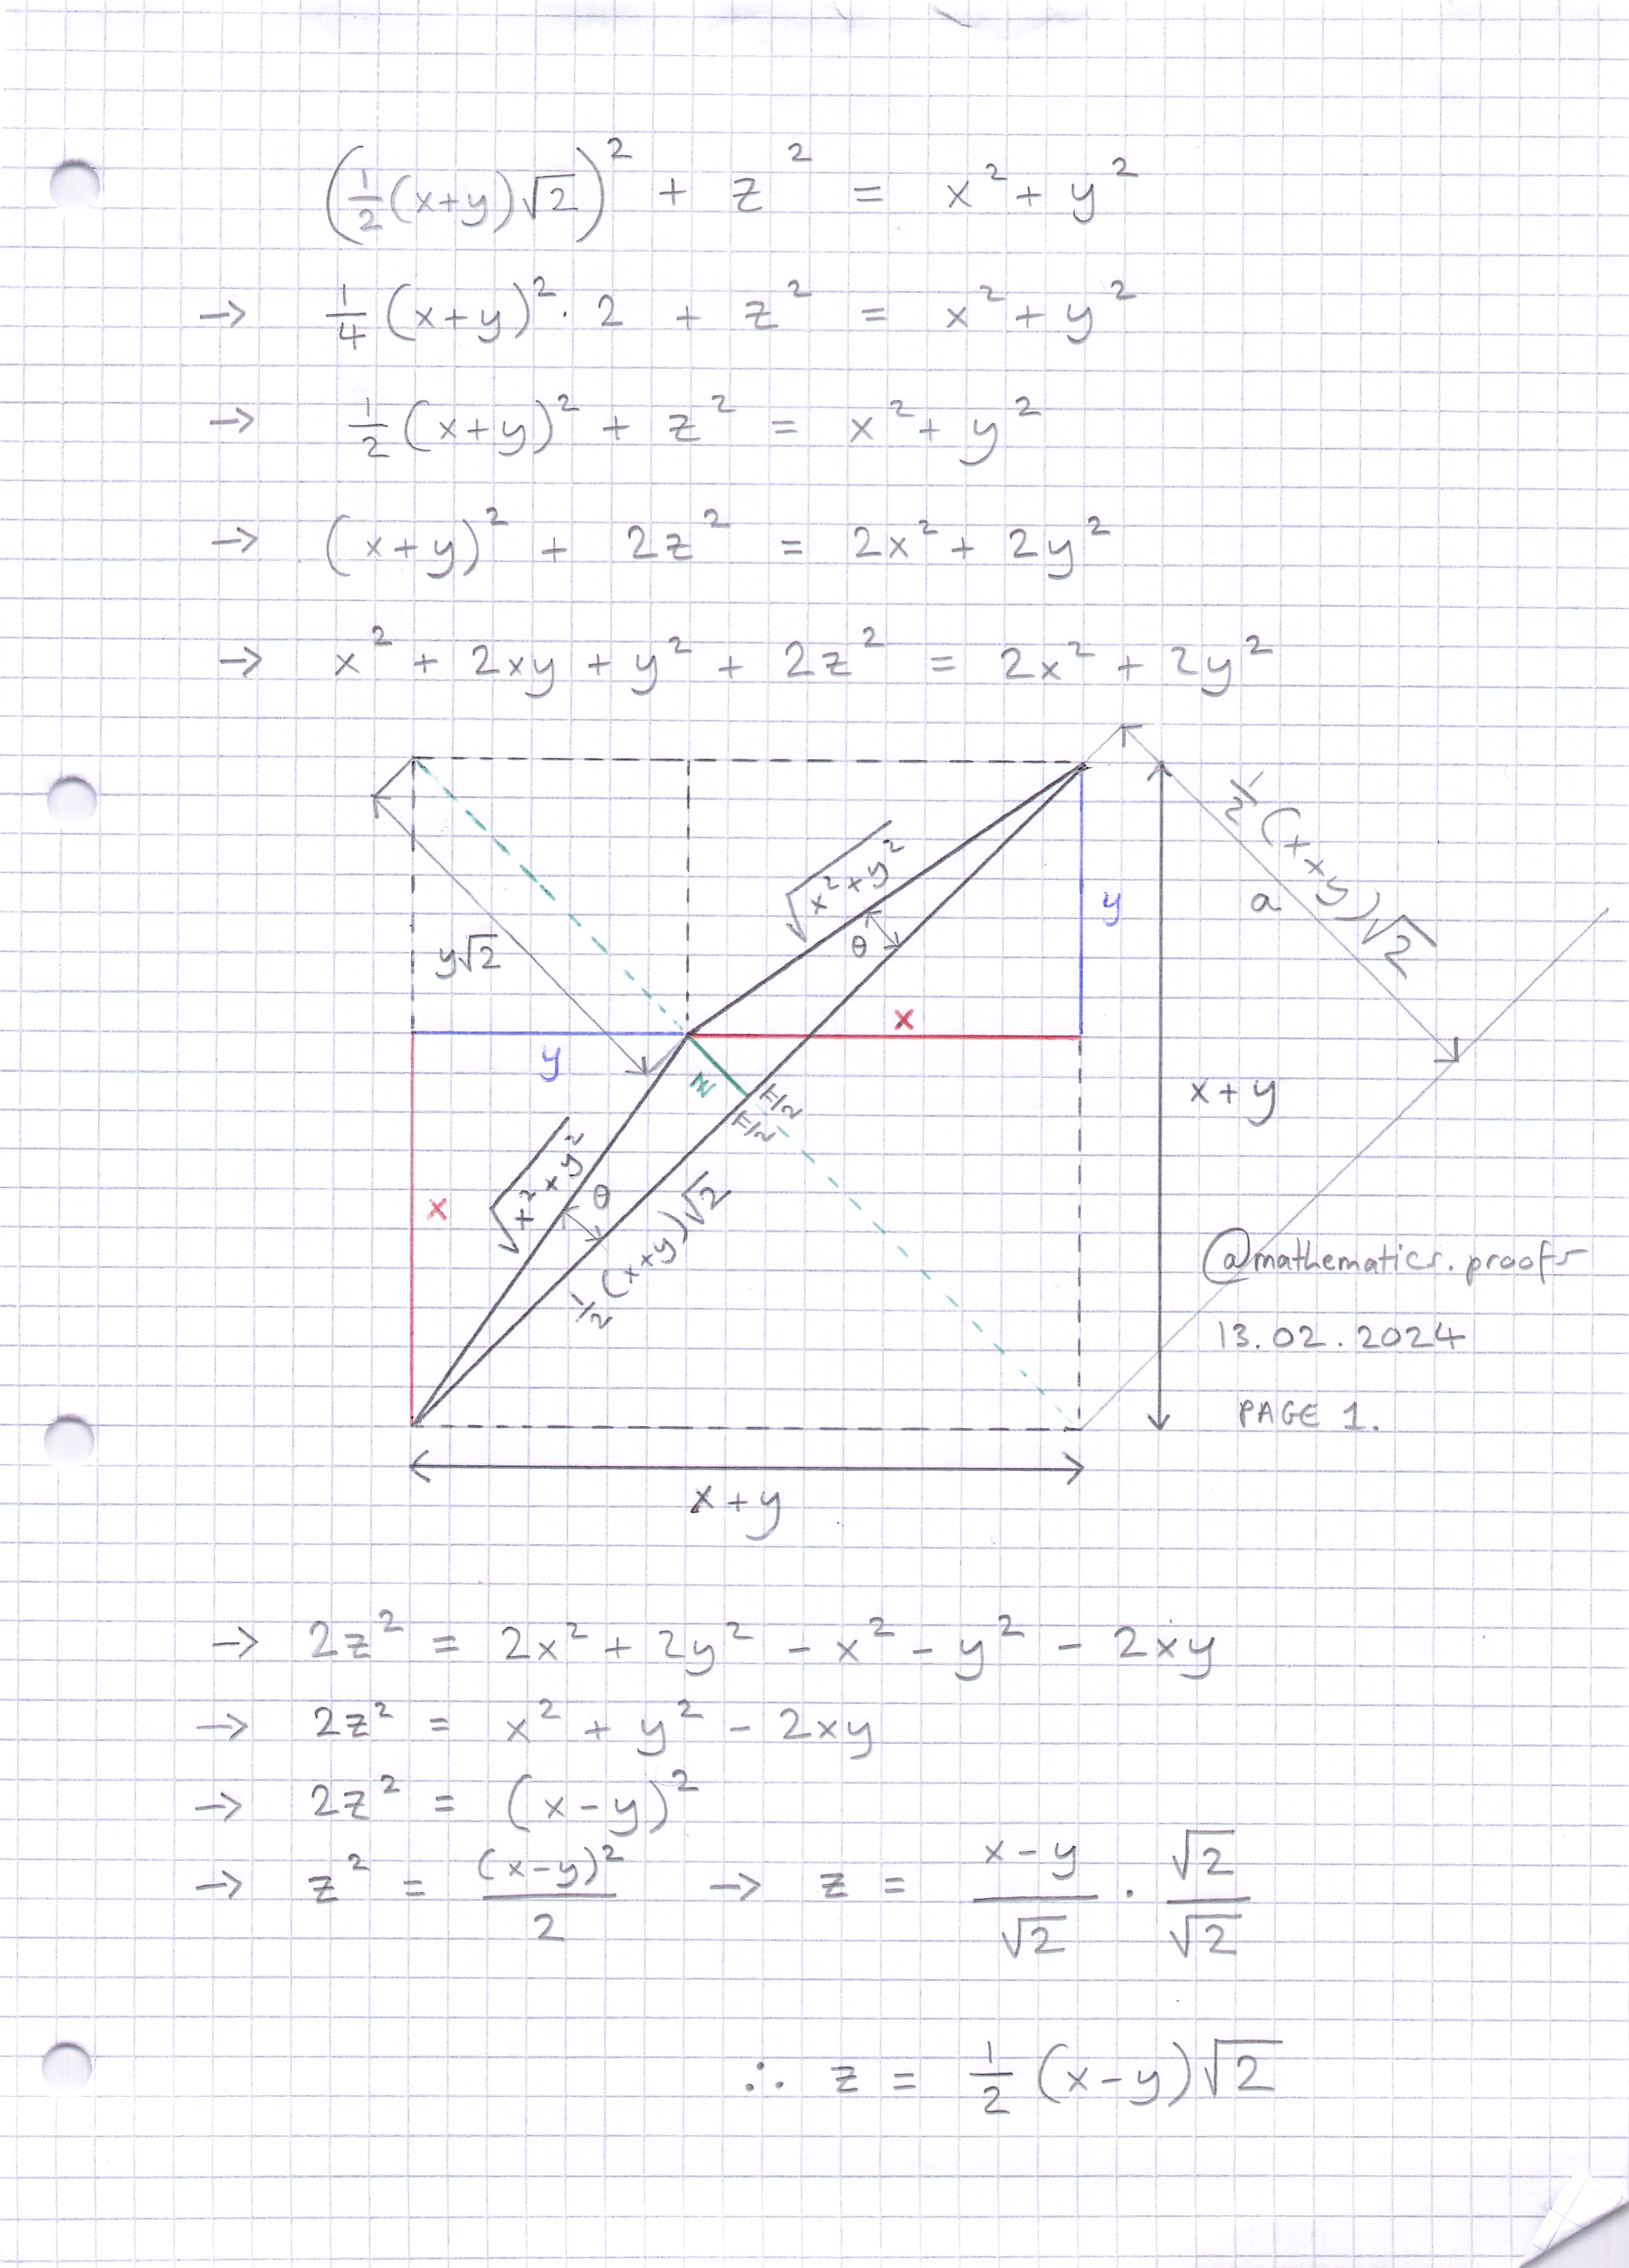 (½(x+y)√2)² + z² = x² + y²
→ ¼(x+y)²·2 + z² = x² + y²
→ ½(x+y)² + z² = x² + y²
→ (x+y)² + 2z² = 2x² + 2y²
→ x² + 2xy + y² + 2z² = 2x² + 2y²
½(x+y)√2
a
√x²+y²
θ
y
y√2
x
y
z
π/2
π/2
x+y
√x²+y²
θ
x
½(x+y)√2
@mathematics.proofs
13.02.2024
PAGE 1.
x+y
→ 2z² = 2x² + 2y² - x² - y² - 2xy
→ 2z² = x² + y² - 2xy
→ 2z² = (x-y)²
→ z² = (x-y)²/2 → z = x-y/√2 · √2/√2
∴ z = ½(x-y)√2